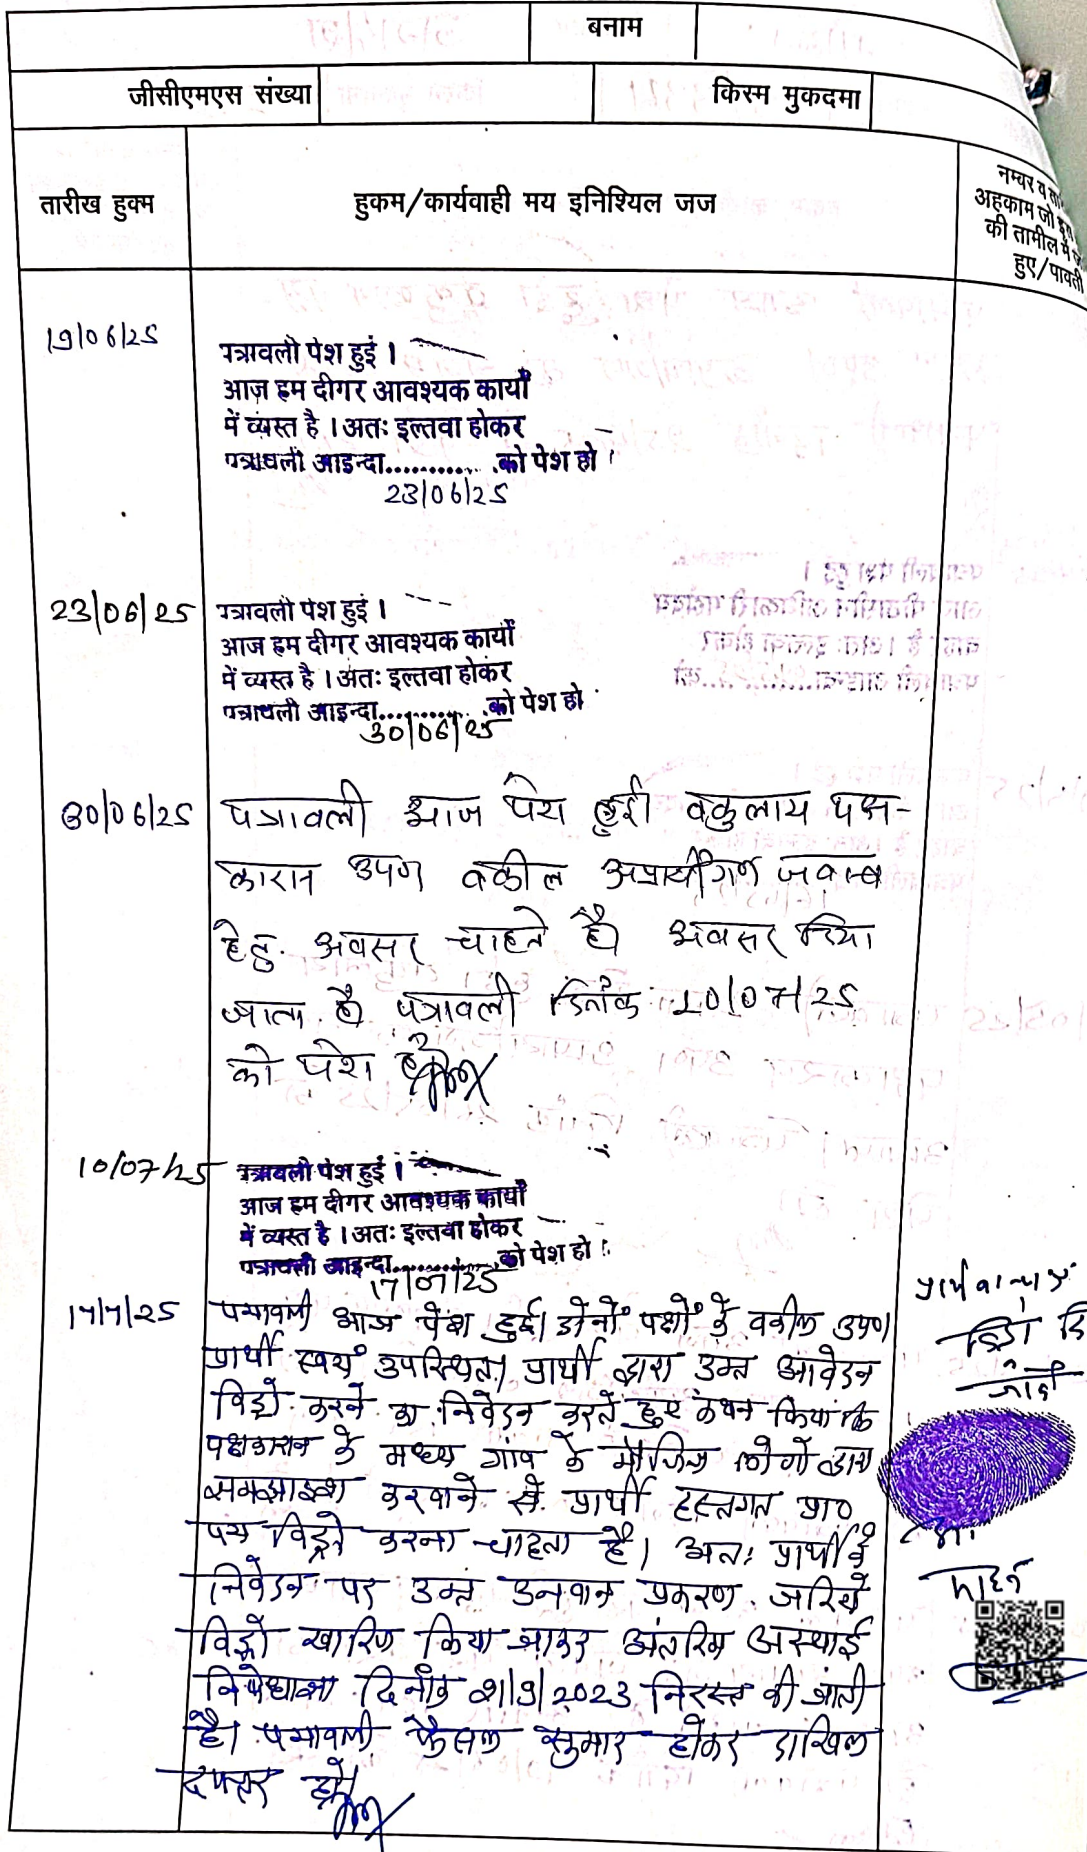 बनाम
जीसीएमएस संख्या
किस्म मुकदमा
तारीख हुक्म
हुकम/कार्यवाही मय इनिशियल जज
नम्बर व
अहकाम जो इस
की तामील में
हुए/पावती
19/06/25
पत्रावली पेश हुई ।
आज हम दीगर आवश्यक कार्यों
में व्यस्त है । अतः इल्तवा होकर
पत्रावली आइन्दा............को पेश हो ।
23/06/25
23/06/25
पत्रावली पेश हुई ।
आज हम दीगर आवश्यक कार्यों
में व्यस्त है । अतः इल्तवा होकर
पत्रावली आइन्दा............को पेश हो
30/06/25
30/06/25
पत्रावली आज पेश हुई। वकुलाय पक्ष-
कारान उपण वकील अप्रार्थीगण जवाब
हेतु अवसर चाहते है। अवसर दिया
जाता है पत्रावली दिनांक 10/07/25
को पेश हो
10/07/25
पत्रावली पेश हुई ।
आज हम दीगर आवश्यक कार्यों
में व्यस्त है । अतः इल्तवा होकर
पत्रावली आइन्दा............को पेश हो ।
17/07/25
17/7/25
पत्रावली आज पेश हुई। दोनों पक्षों के वकील उप०।
प्रार्थी स्वयं उपस्थित। प्रार्थी द्वारा उक्त आवेदन
विड्रो करने का निवेदन करते हुए कथन किया कि
पक्षकारान के मध्य गांव के मौजिज लोगों द्वारा
समझाइश करवाने से प्रार्थी हस्तगत प्रा०
पत्र विड्रो करना चाहता है। अतः प्रार्थी के
निवेदन पर उक्त उनवान प्रकरण जरिये
विड्रो खारिज किया जाकर अंतरिम अस्थाई
निषेधाज्ञा दिनांक 21/9/2023 निरस्त की जाती
है। पत्रावली फैसल सुमार होकर दाखिल
दफ्तर हो।